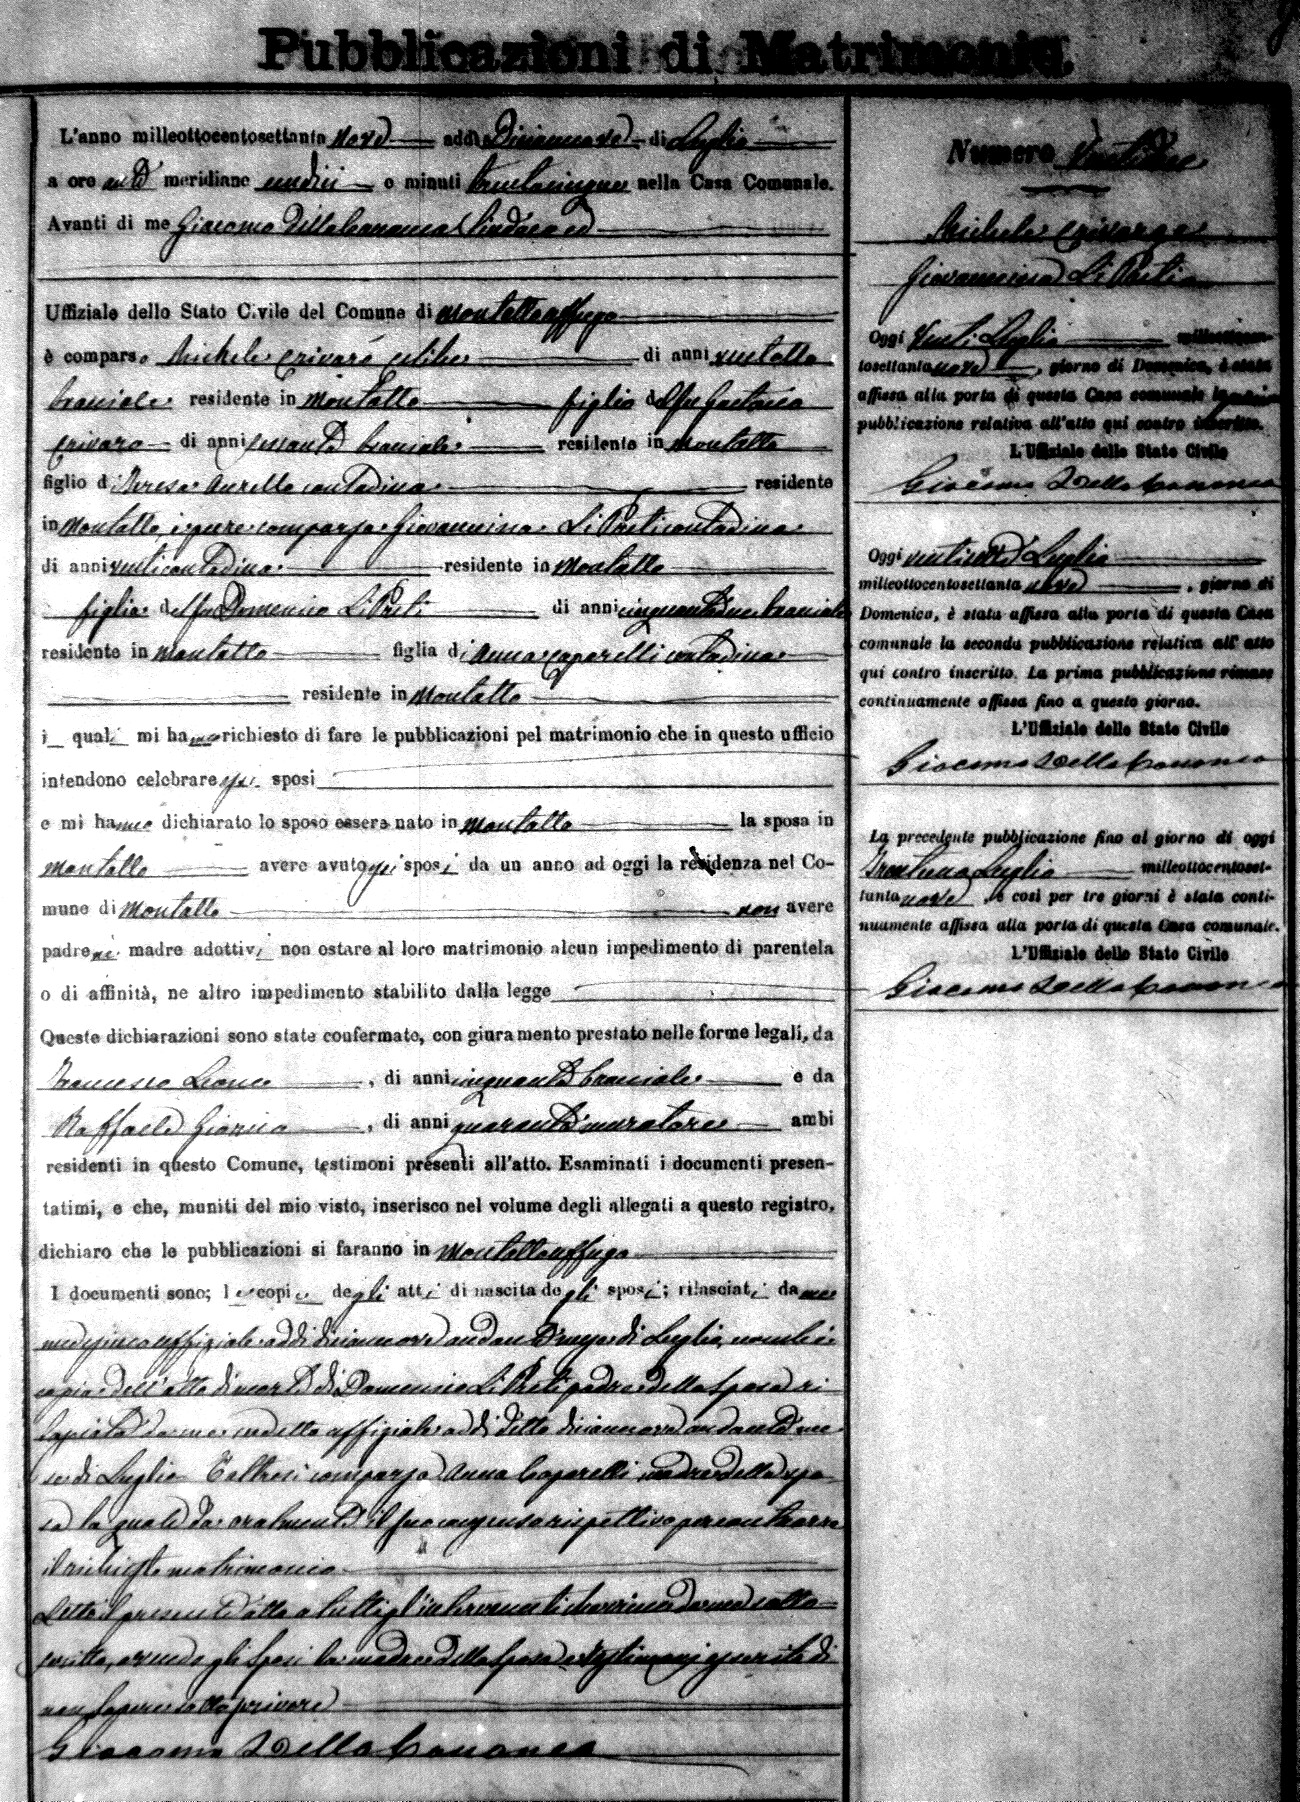 Pubblicazioni di Matrimonio.
L'anno milleottocentosettanta nove addì Diciannove di Luglio
a ore anti meridiane undici e minuti trentacinque nella Casa Comunale.
Avanti di me Giacomo Della Cananea Sindaco ed
Uffiziale dello Stato Civile del Comune di Montalto uffugo
è comparso Michele Crivaro celibe di anni ventotto
bracciale residente in Montalto figlio del fu Gaetano
Crivaro di anni sessanta bracciale residente in Montalto
figlio di Teresa Aurello contadina residente
in Montalto, e pure comparsa Giovannina Li Preti contadina
di anni venti contadina residente in Montalto
figlia del fu Domenico Li Preti di anni cinquantadue bracciale
residente in Montalto figlia di Anna Caparelli contadina
residente in Montalto
i quali mi hanno richiesto di fare le pubblicazioni pel matrimonio che in questo ufficio
intendono celebrare gli sposi
e mi hanno dichiarato lo sposo essere nato in Montalto la sposa in
Montalto avere avuto gli sposi da un anno ad oggi la residenza nel Co-
mune di Montalto non avere
padre nè madre adottivi non ostare al loro matrimonio alcun impedimento di parentela
o di affinità, ne altro impedimento stabilito dalla legge
Queste dichiarazioni sono state confermate, con giuramento prestato nelle forme legali, da
Francesco Leone, di anni cinquanta bracciale e da
Raffaele, di anni quaranta muratore ambi
residenti in questo Comune, testimoni presenti all'atto. Esaminati i documenti presen-
tatimi, e che, muniti del mio visto, inserisco nel volume degli allegati a questo registro,
dichiaro che le pubblicazioni si faranno in Montalto uffugo
I documenti sono; le copie degli atti di nascita degli sposi; rilasciati da me
medesimo uffiziale addi diciannove andante mese di Luglio, nonchè
copia dell'atto di morte di Domenico Li Preti padre della sposa ri
lasciata da me sudetto uffiziale addi detto diciannove andante me
se di Luglio E altresì comparsa Anna Caparelli madre della spo
sa la quale da oralmente il suo consenso rispettivo per contrarre
il richiesto matrimonio
Letto il presente atto a tutti gl'intervenuti da me sotto
scritto, avendo gli sposi la madre della sposa e testimoni di
non sapere sottoscrivere
Giacomo Della Cananea
Numero Ventidue
Michele Crivaro e
Giovannina Li Preti
Oggi Venti Luglio milleottocen-
tosettanta nove, giorno di Domenica, è stata
affissa alla porta di questa Casa comunale la prima
pubblicazione relativa all'atto qui contro inscritto.
L'Uffiziale dello Stato Civile
Giacomo Della Cananea
Oggi ventisette Luglio
milleottocentosettanta nove, giorno di
Domenica, è stata affissa alla porta di questa Casa
comunale la seconda pubblicazione relatica all' atto
qui contro inscritto. La prima pubblicazione rimase
continuamente affissa fino a questo giorno.
L'Uffiziale dello Stato Civile
Giacomo Della Cananea
La precedente pubblicazione fino al giorno di oggi
Trentuno Luglio milleottocentoset-
tanta nove, e così per tre giorni è stata conti-
nuamente affissa alla porta di questa Casa comunale.
L'Uffiziale dello Stato Civile
Giacomo Della Cananea